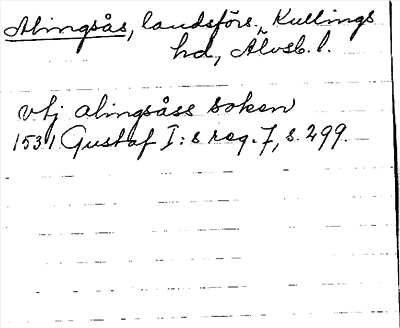 Alingsås, landsförs., Kullings
hd, Älvsb. l.
vtj alingsåss soken
1531 Gustaf I:s reg. 7, s. 299.